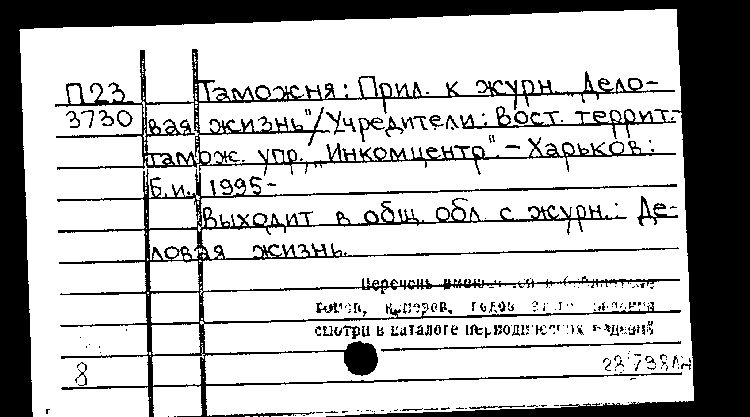 П23 Таможня: Прил. к журн. Дело-
3730 вая жизнь"/Учредители: Вост. террит.
тамож. упр., "Инкомцентр". - Харьков:
Б.и., 1995-
Выходит в общ. обл. с журн.: Де-
ловая жизнь.
Перечень библиотеке
томов, номеров, годов издания
смотри в каталоге периодических изданий
8